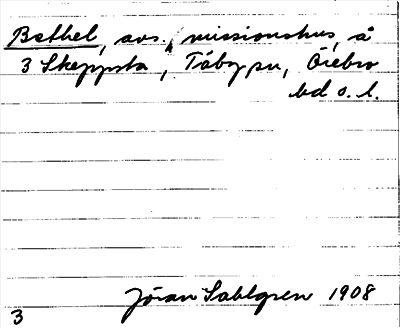 Bethel, avs., missionshus, å
3 Skeppsta, Täby sn, Örebro
hd o. l.
Jöran Sahlgren 1908
3